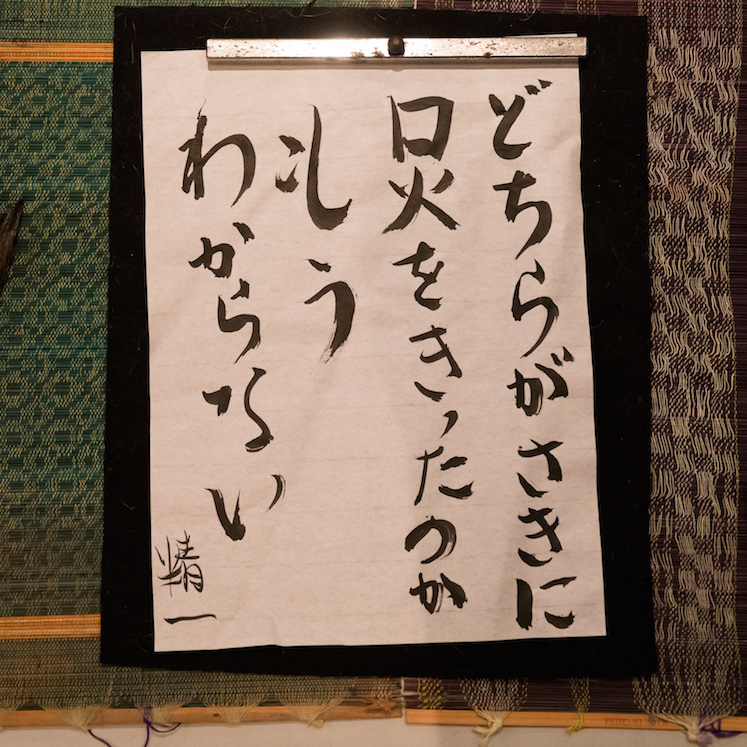 どちらがさきに
口火をきったのか
もう
わからない
精一